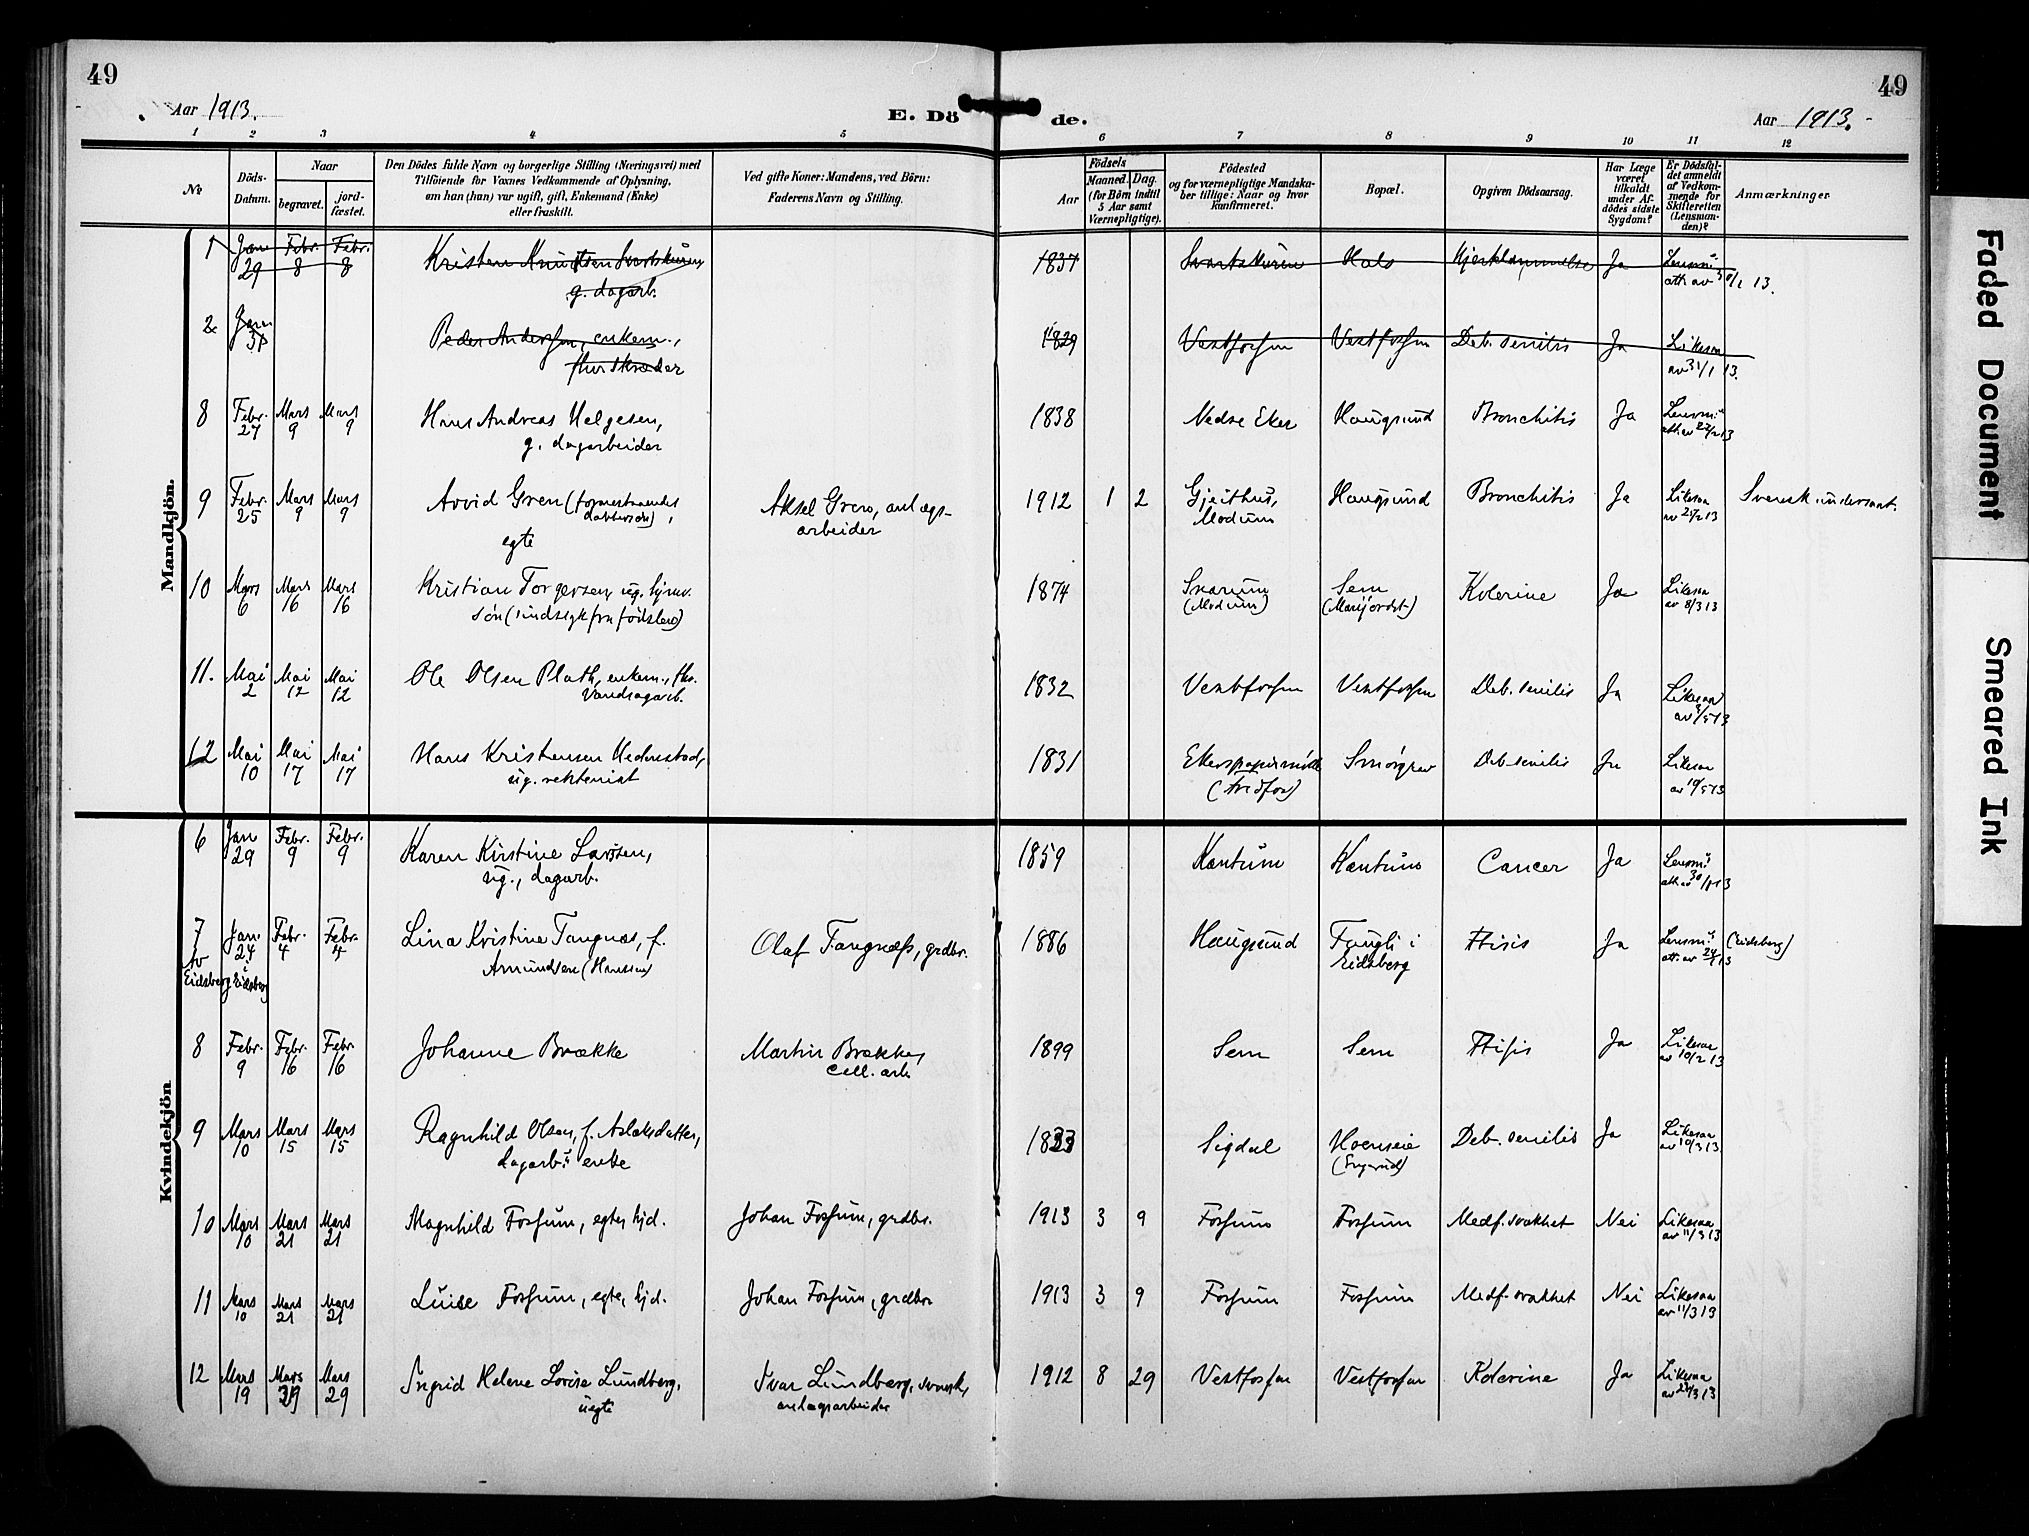 49
49
Aar 1913.
E. Dö de.
Aar 1913.
1 2 3 4 5 6 7 8 9 10 11 12
No
Döds-
Datum.
Naar
begravet.
jord-
fæstet.
Den Dödes fulde Navn og borgerlige Stilling (Næringsvei) med
Tilföiende for Voxnes Vedkommende af Oplysning,
om han (hun) var ugift, gift, Enkemand (Enke)
eller fraskilt.
Ved gifte Koner: Mandens, ved Börn:
Faderens Navn og Stilling.
Födsels
Aar
Maaned.
Dag.
(for Börn indtil
5 Aar samt
Værnepligtige).
Födested
og for værnepligtige Mandska-
ber tillige: Naar og hvor
konfirmeret.
Bopæl.
Opgiven Dödsaarsag.
Har Læge
været
tilkaldt
under Af-
dödes sidste
Sygdom?
Er Dödsfal-
det anmeldt
af Vedkom-
mende for
Skifteretten
(Lensman-
den)?
Anmærkninger.
Mandkjön.
1 Jan. 29 Febr. 8 Febr. 8 Kristen Knudsen 1837 Hals Ja Lensm.s
g. dagarb. att. av 30/1 13.
2 Jan. 31 Peder Andersen, enkem., 1829 Vestfossen Vestfossen Deb. senilis Ja Likesaa
av 31/1 13.
8 Febr. 27 Mars 9 Mars 9 Hans Andreas Helgesen, 1838 Nedre Eker Haugsund Bronchitis Ja Lensm.s
g. dagarbeider att. av 27/2 13
9 Febr. 25 Mars 9 Mars 9 Arvid Gren Aksel Gren, anlægs- 1912 1 2 Gjeithus, Haugsund Bronchitis Ja Likesaa Svensk undersaat.
arbeider Modum av 25/2 13
egte
10 Mars 6 Mars 16 Mars 16 Kristian Torgersen, ug. 1874 Snarum Sem Kolerine Ja Likesaa
søn (sindsygk fra fødslen) (Modum) av 8/3 13
11. Mai 2 Mai 12 Mai 12 Ole Olsen Plath, enkem., fhv. 1832 Vestfossen Vestfossen Deb. senilis Ja Likesaa
12 Mai 10 Mai 17 Mai 17 Hans Kristensen Hedenstad, 1831 Smørgrav Deb. senilis Ja Likesaa
ug. av 10/5 13
Kvindekjön
6 Jan 29 Febr. 9 Febr. 9 Karen Kirstine Larsen, 1859 Kantum Kantum Cancer Ja Lensm.s
ug., dagarb. att. av 30/1 13
7 Jan. 24 Febr. 4 Febr. 4 Lina Kristine Tangnæs, f. Olaf Tangnæss, grdbr. 1886 Haugsund i Ftisis Ja Lensm.s (Eidsberg)
av Eidsberg i Eidsberg Amundsen (Hansen) Eidsberg att. av 24/1 13
8 Febr. 9 Febr. 16 Febr. 16 Johanne Brække Martin Brække, 1899 Sem Sem Ftisis Ja Likesaa
cell. arb. av 10/2 13
9 Mars 10 Mars 15 Mars 15 Ragnhild Olsen, f. Aslaksdatter, 1833 Sigdal Hoenseie Deb. senilis Ja Likesaa
dagarb.s enke av 10/3 13
10 Mars 10 Mars 21 Mars 21 Magnhild Fossum, egte, hjd. Johan Fossum, grdbr. 1913 3 9 Fossum Fossum Medf. svakhet Nei Likesaa
av 11/3 13
11 Mars 10 Mars 21 Mars 21 Luise Fossum, egte, hjd. Johan Fossum, grdbr. 1913 3 9 Fossum Fossum Medf. svakhet Nei Likesaa
av 11/3 13
12 Mars 19 Mars 29 Mars 29 Ingrid Helene Lovise Lundberg, Ivar Lundberg, svensk, 1912 8 29 Vestfossen Vestfossen Kolerine Ja Likesaa
uegte anlægsarbeider
Faded Document
Smeared Ink